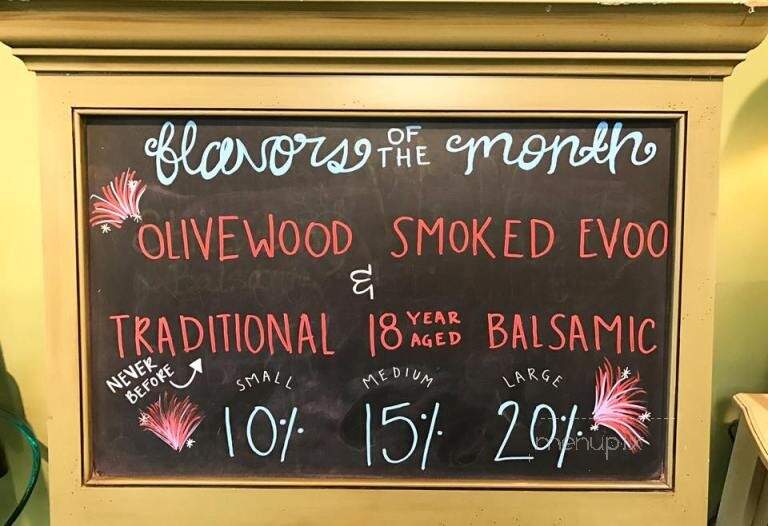 flavors OF THE month
OLIVEWOOD SMOKED EVOO
&
TRADITIONAL 18 YEAR AGED BALSAMIC
NEVER BEFORE
SMALL MEDIUM LARGE
10% 15% 20%